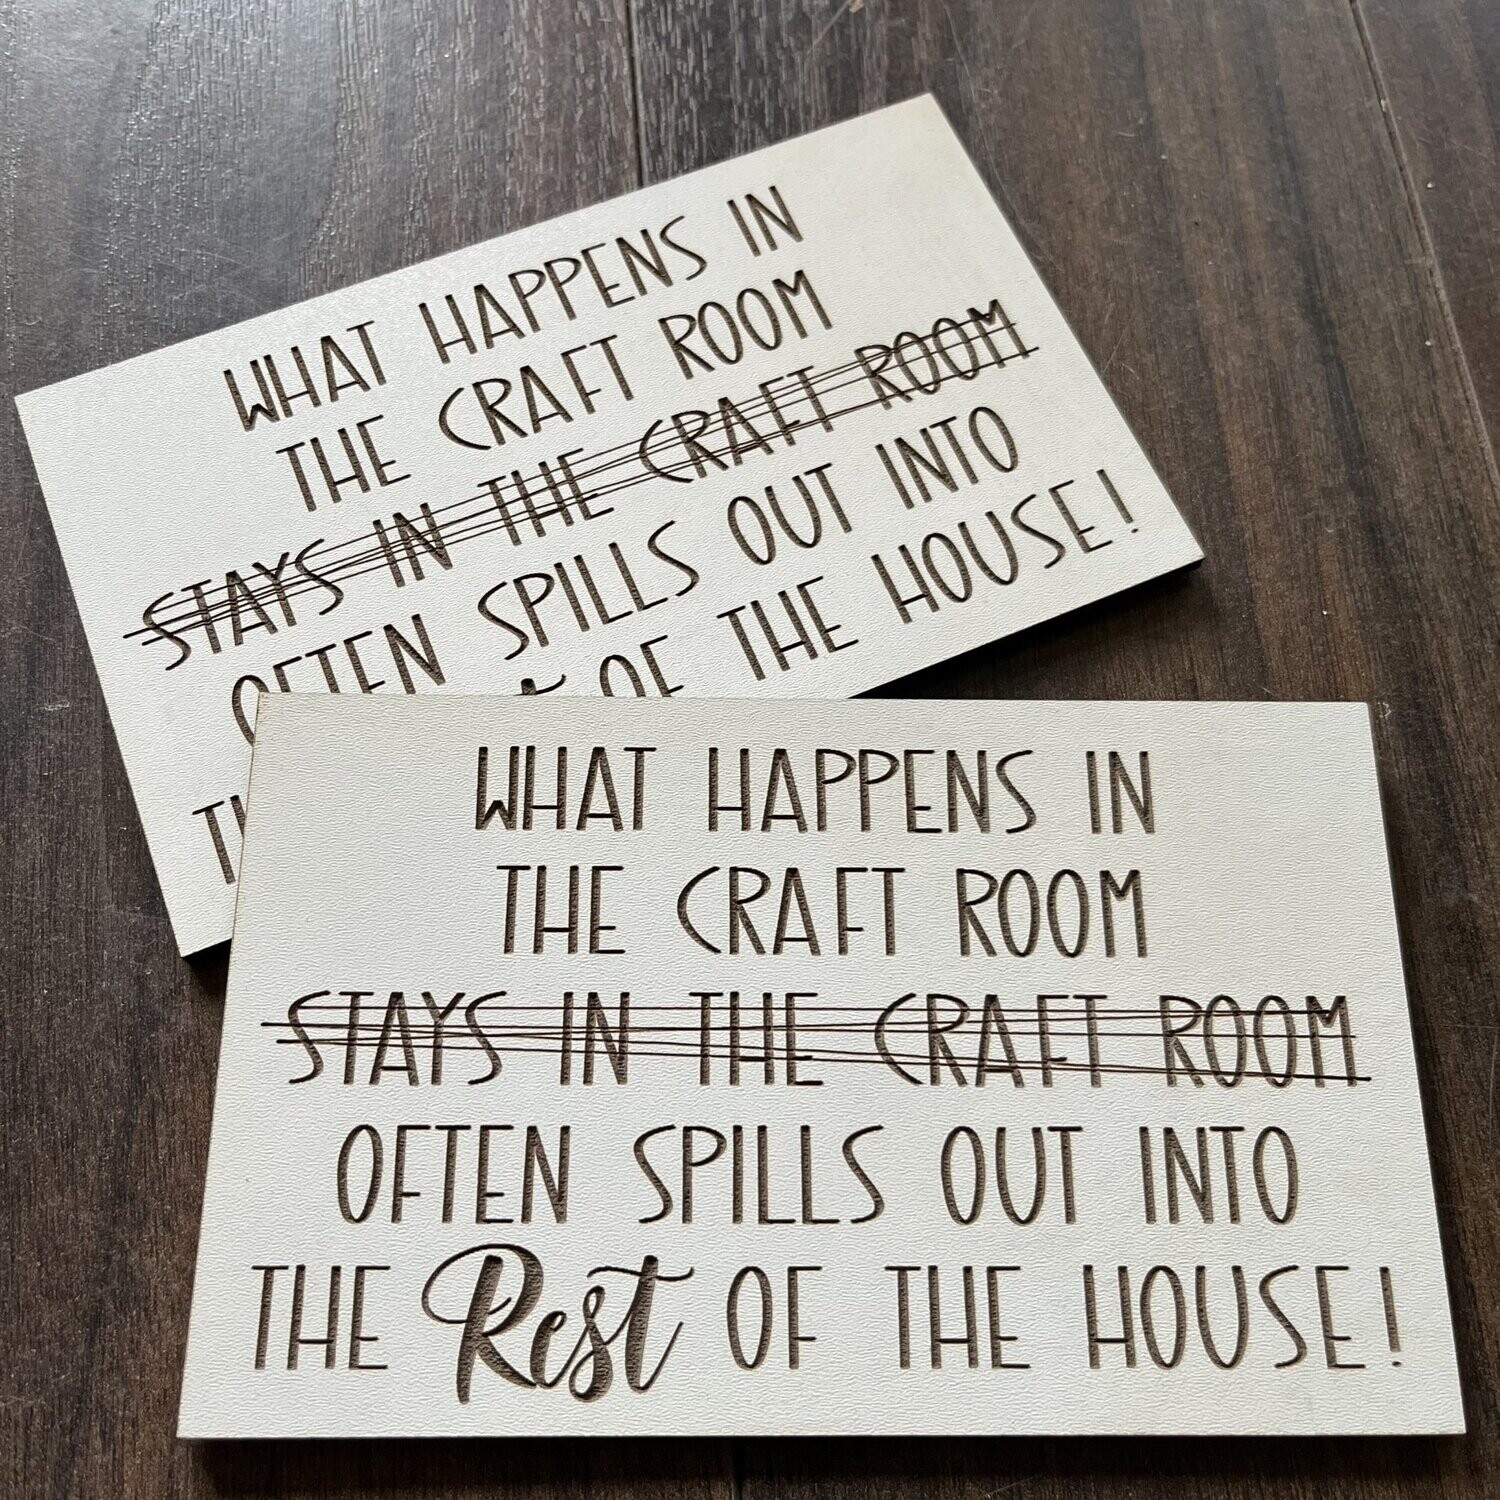 WHAT HAPPENS IN
THE CRAFT ROOM
STAYS IN THE CRAFT ROOM
OFTEN SPILLS OUT INTO
OF THE HOUSE!
WHAT HAPPENS IN
THE CRAFT ROOM
STAYS IN THE CRAFT ROOM
OFTEN SPILLS OUT INTO
THE Rest OF THE HOUSE!